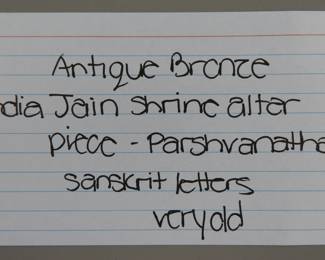 Antique Bronze
dia Jain shrine alter
piece - Parshvanatha
sanskrit letters
very old